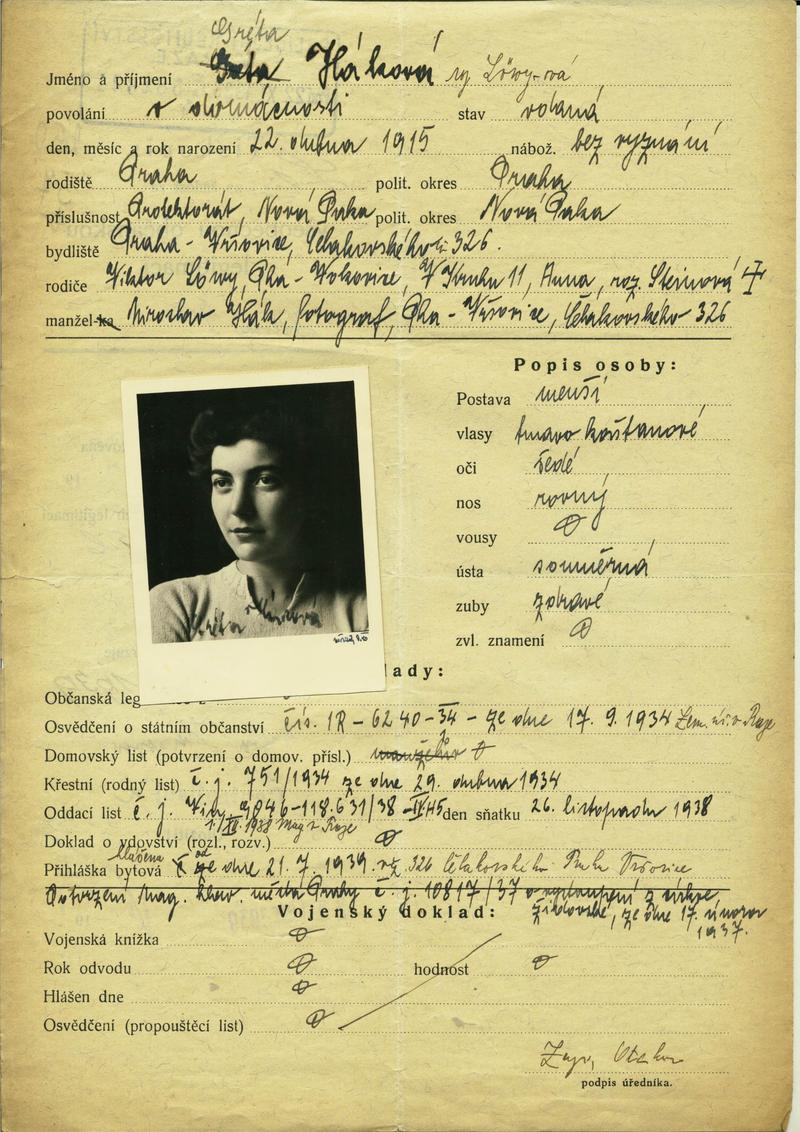 Gréta
Jméno a příjmení Gréta Háková roz. Löwy-ová
povolání v domácnosti stav vdaná
den, měsíc a rok narození 22. dubna 1915 nábož. bez vyznání
rodiště Praha polit. okres Praha
příslušnost Protektorát, Nová Paka polit. okres Nová Paka
bydliště Praha - Vršovice, Čelakovského č. 326.
rodiče Viktor Löwy, Pha - Vokovice, 11, Anna, roz. Steinová
manžel-ka Miroslav Hák, fotograf, Pha - Vršovice, Čelakovského 326
Popis osoby:
Postava menší
vlasy tmavo kaštanové
oči šedé
nos rovný
vousy
ústa souměrná
zuby zdravé
zvl. znamení
Gréta Háková
lady:
Občanská leg
Osvědčení o státním občanství čís. IR - 6240 - 34 - ze dne 17. 9. 1934
Domovský list (potvrzení o domov. přísl.)
Křestní (rodný list) č. j. 751/1934 ze dne 29. dubna 1934
Oddací list č. j. 9846-118.631/38 den sňatku 26. listopadu 1938
Doklad o vdovství (rozl., rozv.)
Přihláška bytová ze dne 21. 7. 1939. 326 Čelakovského Praha Vršovice
Potvrzení Mag. hlav. města Prahy č. j. 10817/37 o vystoupení z církve
židovské, ze dne 17. února
1937.
Vojenský doklad:
Vojenská knížka
Rok odvodu hodnost
Hlášen dne
Osvědčení (propouštěcí list)
podpis úředníka.